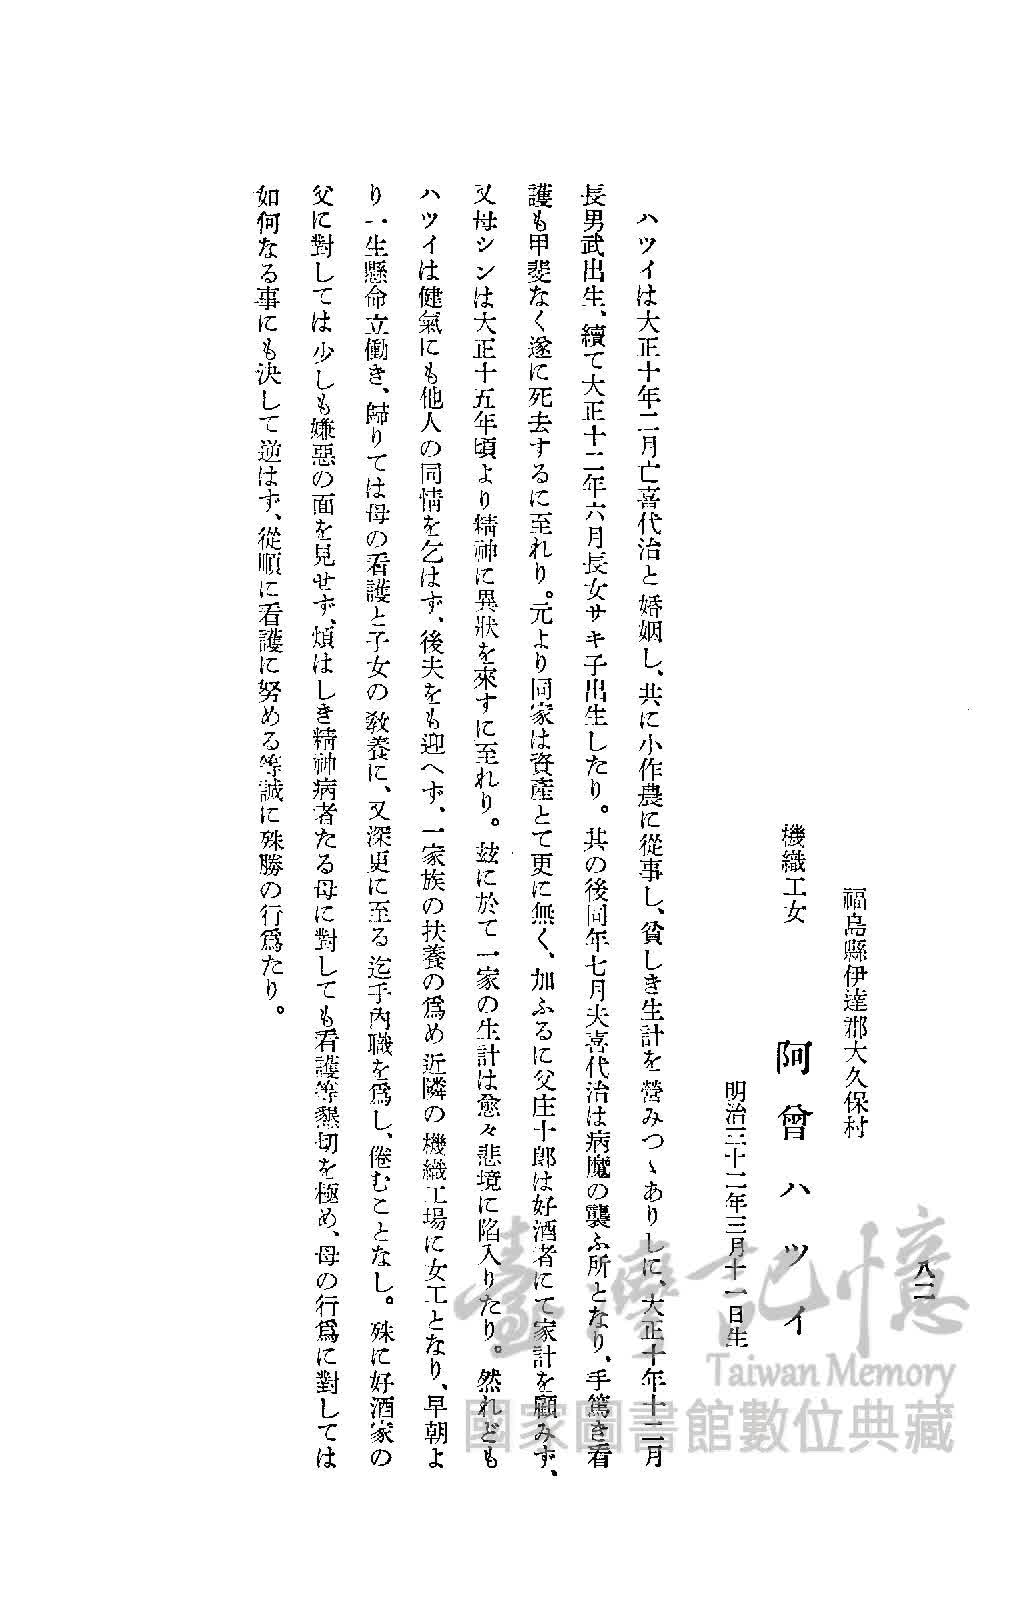 八二
福島縣伊達郡大久保村
機織工女　阿曾ハツイ
明治三十二年三月十一日生
ハツイは大正十年二月亡喜代治と婚姻し、共に小作農に從事し、貧しき生計を營みつゝありしに、大正十年十二月
長男武出生、續て大正十二年六月長女サキ子出生したり。其の後同年七月夫喜代治は病魔の襲ふ所となり、手篤き看
護も甲斐なく遂に死去するに至れり。元より同家は資產とて更に無く、加ふるに父庄十郎は好酒者にて家計を顧みず、
又母シンは大正十五年頃より精神に異狀を來すに至れり。玆に於て一家の生計は愈々悲境に陷入りたり。然れども
ハツイは健氣にも他人の同情を乞はず、後夫をも迎へず、一家族の扶養の爲め近隣の機織工場に女工となり、早朝よ
り一生懸命立働き、歸りては母の看護と子女の敎養に、又深更に至る迄手內職を爲し、倦むことなし。殊に好酒家の
父に對しては少しも嫌惡の面を見せず、煩はしき精神病者たる母に對しても看護等懇切を極め、母の行爲に對しては
如何なる事にも決して逆はず、從順に看護に努める等誠に殊勝の行爲たり。
臺灣記憶
Taiwan Memory
國家圖書館數位典藏